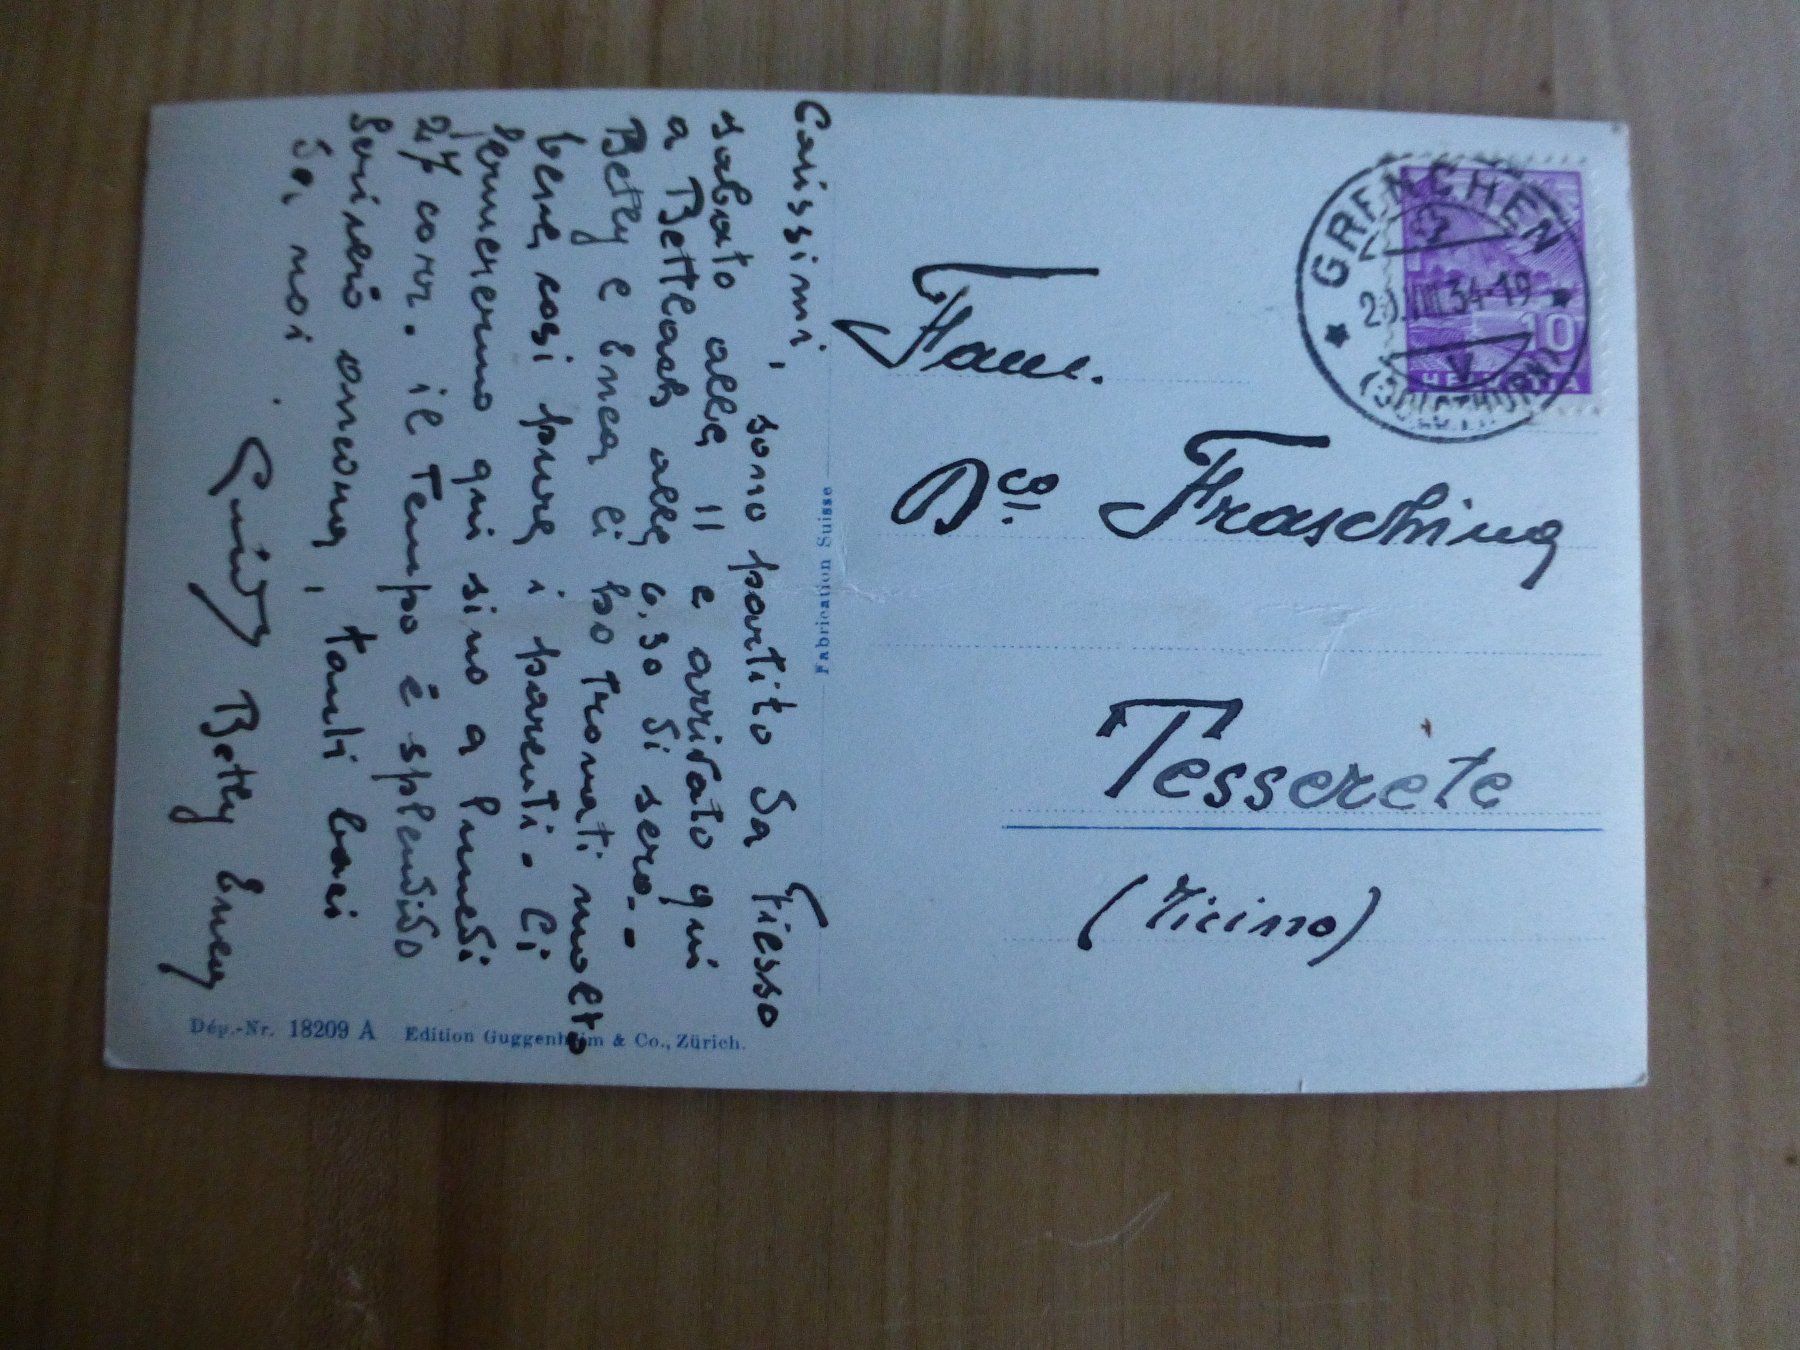 Carissimi,
sono partito da Fiesso
sabato alle 11 e arrivato qui
a Bettlach alle 6.30 di sera.-
Betly e Enea li ho trovati molto
bene, così pure i parenti. Ci
fermeremo qui sino a lunedi
27 corr. il tempo è splendido
Scriverò ancora, tanti baci
da noi.
Guido Betly Enea
Fabrication Suisse
Dép.-Nr. 18209 A Edition Guggenheim & Co., Zürich.
GRENCHEN
20.VIII.34-19
V
(SOLOTHURN)
10
HELVETIA
Fam.
Dco. Frasching
Tesserete
(Ticino)